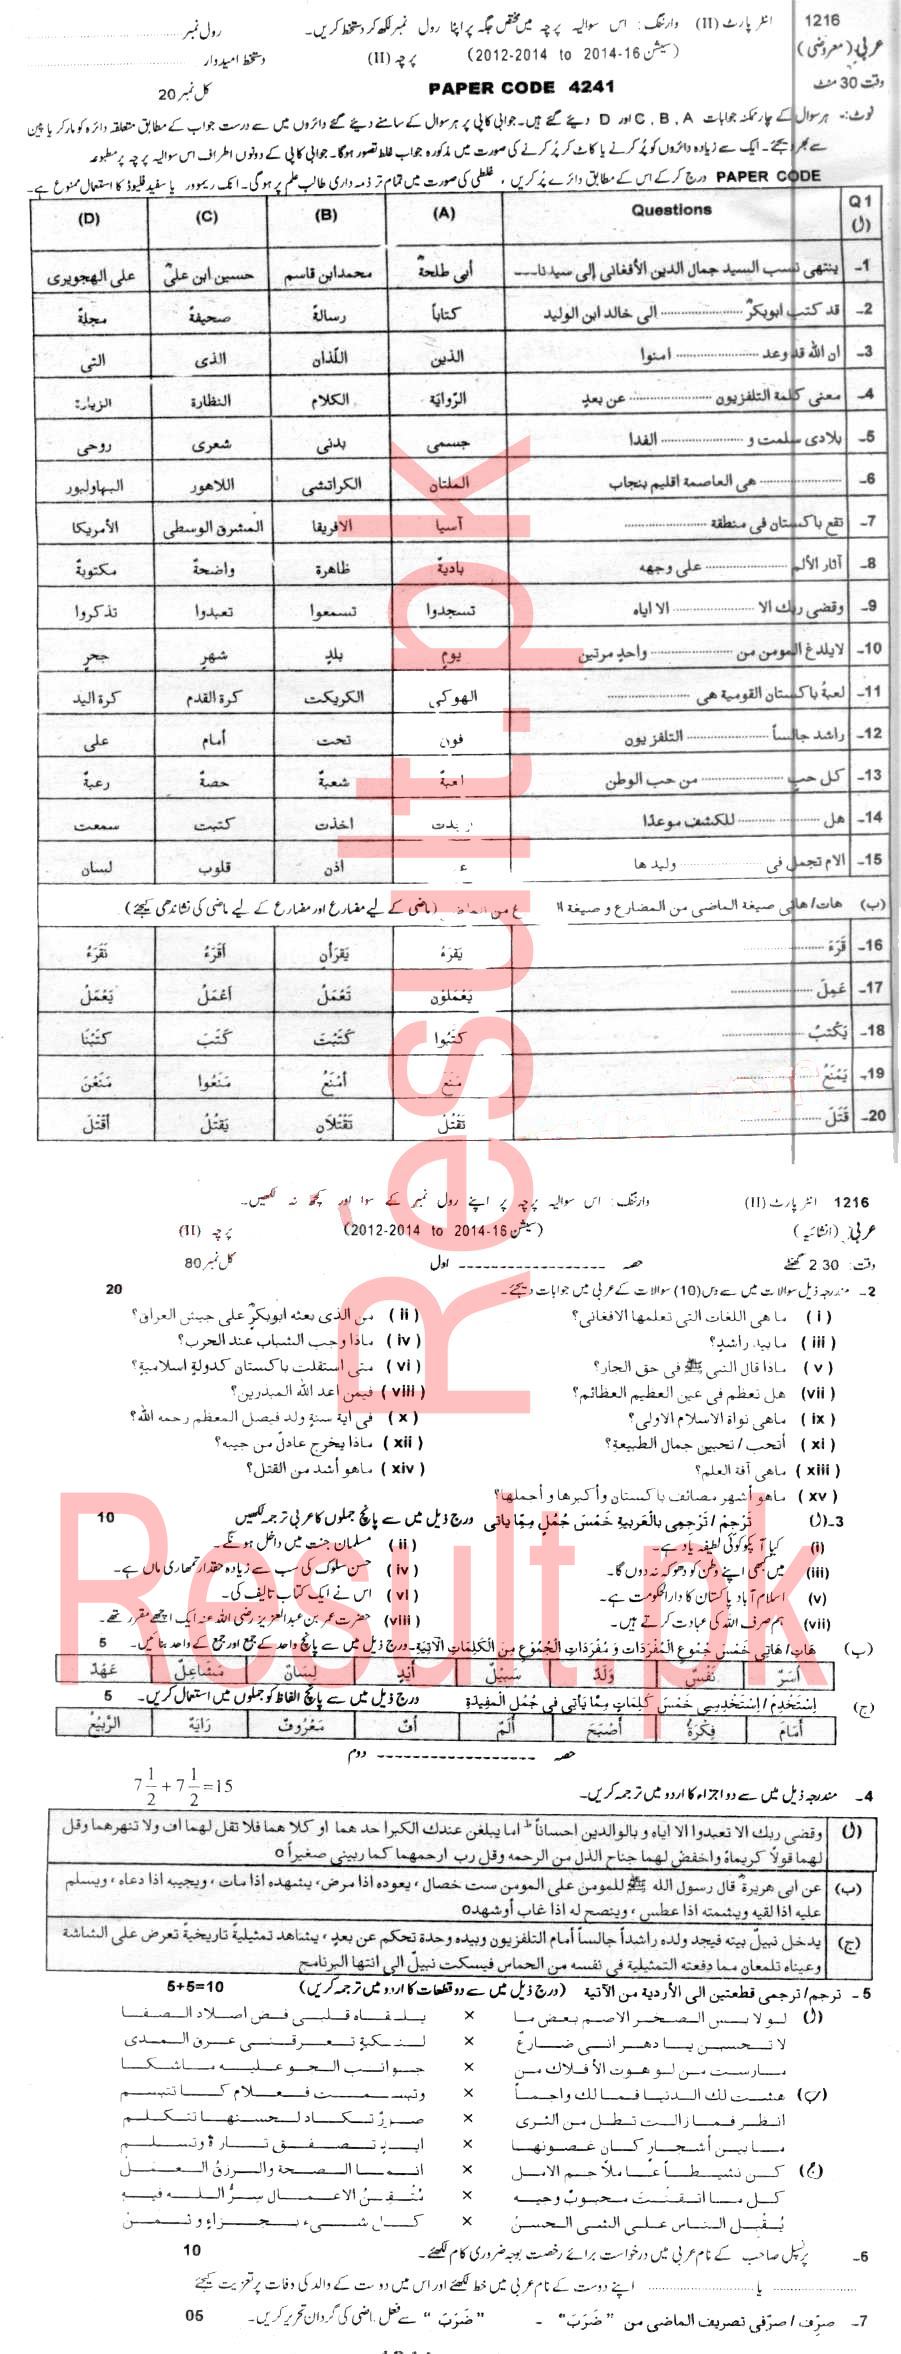 1216 انٹر پارٹ (II) وارننگ: اس سوالیہ پرچہ میں مختص جگہ پر اپنا رول نمبر لکھ کر دستخط کریں۔ رول نمبر
عربی (معروضی) (سیشن 2012-2014 to 2014-16) پرچہ (II) دستخط امیدوار
وقت 30 منٹ PAPER CODE 4241 کل نمبر 20
نوٹ:- ہر سوال کے چار ممکنہ جوابات A ، B ، C اور D دیئے گئے ہیں۔ جوابی کاپی پر ہر سوال کے سامنے دیئے گئے دائروں میں سے درست جواب کے مطابق متعلقہ دائرہ کو مارکر یا پین
سے بھر دیجئے۔ ایک سے زیادہ دائروں کو پُر کرنے یا کاٹ کر پُر کرنے کی صورت میں مذکورہ جواب غلط تصور ہوگا۔ جوابی کاپی کے دونوں اطراف اس سوالیہ پرچہ پر مطبوعہ
PAPER CODE درج کر کے اس کے مطابق دائرے پُر کریں ، غلطی کی صورت میں تمام تر ذمہ داری طالب علم پر ہوگی۔ انک ریموور یا سفید فلیوڈ کا استعمال ممنوع ہے۔
Q 1 (ل) Questions (A) (B) (C) (D)
1- ينتهى نسب السيد جمال الدين الأفغانى إلى سيدنا---- أبى طلحةؓ محمد ابن قاسم حسين ابن علىؓ على الهجويرى
2- قد كتب ابوبكرؓ ............ الى خالد ابن الوليد كتاباً رسالةً صحيفةً مجلةً
3- ان الله قد وعد ............ امنوا الذين اللّذان الذى التى
4- معنى كلمة التلفزيون ............ عن بعدٍ الرّواية الكلام النظارة الزيارة
5- بلادى سلمت و ............ الفدا جسمى بدنى شعرى روحى
6- ............ هى العاصمة اقليم بنجاب الملتان الكراتشى اللاهور البهاولبور
7- تقع باكستان فى منطقة ............ آسيا الافريقا المشرق الوسطى الأمريكا
8- آثار الألم ............ على وجهه باديةً ظاهرة واضحةً مكتوبةً
9- وقضى ربك الا ............ الا اياه تسجدوا تسمعوا تعبدوا تذكروا
10- لايلدغ المومن من ............ واحدٍ مرتين يومٍ بلدٍ شهرٍ جحرٍ
11- لعبةُ باكستان القومية هى ............ الهوكى الكريكت كرة القدم كرة اليد
12- راشد جالساً ............ التلفزيون فوق تحت أمام على
13- كل حبٍ ............ من حب الوطن لعبةً شعبةً حصةً رعبةً
14- هل ............ للكشف موعدًا اخذت كتبت سمعت
15- الام تجمل فى ............ وليدها اذن قلوب لسان
(ب) هات/هاتى صيغة الماضى من المضارع و صيغة (ماضی کے لیے مضارع اور مضارع کے لیے ماضی کی نشاندھی کیجئے)
16- قَرَءَ ............ يَقرَءُ يَقرَأنِ أقْرَءُ نَقْرَءُ
17- عَمِلَ ............ يَعْمَلُوْنَ تَعْمَلُ أعْمَلُ يَعْمَلُ
18- يَكْتُبُ ............ كَتَبُوا كَتَبْتَ كَتَبَ كَتَبْنَا
19- يَمْنَعُ ............ مَنَعَ أمْنَعُ مَنَعُوا مَنَعْنَ
20- قَتَلَ ............ تَقْتُلُ تَقْتُلَانِ يَقْتُلُ أقْتُلَ
1216 انٹر پارٹ (II) وارننگ: اس سوالیہ پرچہ پر اپنے رول نمبر کے سوا اور کچھ نہ لکھیں۔
عربی (انشائیہ) (سیشن 2012-2014 to 2014-16) پرچہ (II)
وقت: 2.30 گھنٹے حصہ ------------------ اول کل نمبر 80
2- مندرجہ ذیل سوالات میں سے دس (10) سوالات کے عربی میں جوابات دیجئے۔ 20
(i) ما هى اللغات التى تعلمها الافغانى؟ (ii) من الذى بعثه ابوبكرؓ على جيش العراق؟
(iii) ما بيد راشدٍ؟ (iv) ماذا وجب الشباب عند الحرب؟
(v) ماذا قال النبى ﷺ فى حق الجار؟ (vi) متى استقلت باكستان كدولةٍ اسلاميةٍ؟
(vii) هل تعظم فى عين العظيم العظائم؟ (viii) فيمن اعد الله المبذرين؟
(ix) ماهى نواة الاسلام الاولى؟ (x) فى اية سنةٍ ولد فيصل المعظم رحمه الله؟
(xi) أتحب/تحبين جمال الطبيعة؟ (xii) ماذا يخرج عادلٌ من جيبه؟
(xiii) ماهى آفة العلم؟ (xiv) ماهو أشد من القتل؟
(xv) ماهو أشهر مصائف باكستان وأكبرها و أجملها؟
3-(ل) تَرْجِمْ/تَرْجِمِى بالْعَربيةِ خَمْسَ جُمَلٍ مِمَّا ياتى درج ذیل میں سے پانچ جملوں کا عربی ترجمہ لکھیں 10
(i) کیا آپکو کوئی لطیفہ یاد ہے۔ (ii) مسلمان جنت میں داخل ہونگے۔
(iii) میں کبھی اپنے وطن کو دھوکہ نہ دوں گا۔ (iv) حسن سلوک کی سب سے زیادہ حقدار تمھاری ماں ہے۔
(v) اسلام آباد پاکستان کا دارالحکومت ہے۔ (vi) اس نے ایک کتاب تالیف کی۔
(vii) ہم صرف اللہ کی عبادت کرتے ہیں۔ (viii) حضرت عمر بن عبدالعزیز رضی اللہ عنہ ایک اچھے مقرر تھے۔
(ب) هَاتِ/هَاتِى خَمْسَ جُمُوعِ الْمُفْرَدَات وَ مُفْرَدَاتِ الْجُمُوعِ مِنَ الْكَلِمَاتِ الآتِيَةِ۔ درج ذیل میں سے پانچ واحد کے جمع اور جمع کے واحد بنائیں۔ 5
أسَرٌ نَفْسٌ وَلَدٌ سَبِيْلٌ أيْدٍ لِسَانٌ مَشَاعِلُ عَهْدٌ
(ج) اِسْتَخْدِمْ/اِسْتَخْدِمِى خَمْسَ كَلِمَاتٍ مِمَّا يَأتِى فى جُمَلِ الْمُفِيْدَةِ درج ذیل میں سے پانچ الفاظ کو جملوں میں استعمال کریں۔ 5
أمَامَ فِكْرَةٌ أصْبَحَ ألَمٌ أُفٌ مَعْرُوفٌ رَايَةٌ الرَّبِيْعُ
حصہ ------------------ دوم
4- مندرجہ ذیل میں سے دو اجزاء کا اردو میں ترجمہ کریں۔ 7 1/2 + 7 1/2 = 15
(ل) وقضى ربك الا تعبدوا الا اياه و بالوالدين احساناً ط اما يبلغن عندك الكبرا حد هما او كلا هما فلا تقل لهما اف ولا تنهرهما وقل
لهما قولًا كريماً0 واخفض لهما جناح الذل من الرحمه وقل رب ارحمهما كما ربينى صغيراً o
(ب) عن ابى هريرةؓ قال رسول الله ﷺ للمومن على المومن ست خصال ، يعوده اذا مرض، يشهده اذا مات ، ويجيبه اذا دعاه ، ويسلم
عليه اذا لقيه ويشمته اذا عطس ، وينصح له اذا غاب أوشهدo
(ج) يدخل نبيلٌ بيته فيجد ولده راشداً جالساً أمام التلفزيون وبيده وحدة تحكم عن بعدٍ ، يشاهد تمثيليةً تاريخيةً تعرض على الشاشة
وعيناه تلمعان مما دفعته التمثيلية فى نفسه من الحماس فيسكت نبيلٌ الى انتها البرنامج
5- ترجم/ترجمى قطعتين الى الأردية من الآتية (درج ذیل میں سے دو قطعات کا اردو میں ترجمہ کریں) 5+5=10
(ل) لو لابس الصخر الاصم بعض ما × يلقاه قلبى فض اصلاد الصفا
لا تحسبن يا دهر انى ضارعٌ × لنكبةٍ تعرقنى عرق المدى
مارست من لو هوت الأفلاك من × جوانب الجو عليه ماشكا
(ب) هشت لك الدنيا فمالك واجماً × وتبسمت فعلام لا تتبسم
انظر فما زالت تطل من الثرى × صورٌ تكاد لحسنها تتكلم
ما بين أشجارٍ كان غصونها × ايدٍ تصفق تارةً وتسلم
(ج) كن نشيطاً عاملاً جم الامل × انما الصحة والرزق العمل
كل ما اتقنت محبوبٌ وجيه × مُتْقِنُ الاعمال سِرُّ الله فيه
يُقْبِل الناس على الشئ الحسن × كل شىءٍ بجزاءٍ وثمن
6- پرنسپل صاحب کے نام عربی میں درخواست برائے رخصت بوجہ ضروری کام لکھئے۔ 10
............ یا ............ اپنے دوست کے نام عربی میں خط لکھئے اور اس میں دوست کے والد کی وفات پر تعزیت کیجئے
7- صرِّف/صرِّفى تصريف الماضى من "ضَرَبَ" - "ضَرَبَ" سے فعل ماضی کی گردان تحریر کریں۔ 05
Result.pk
Result.pk